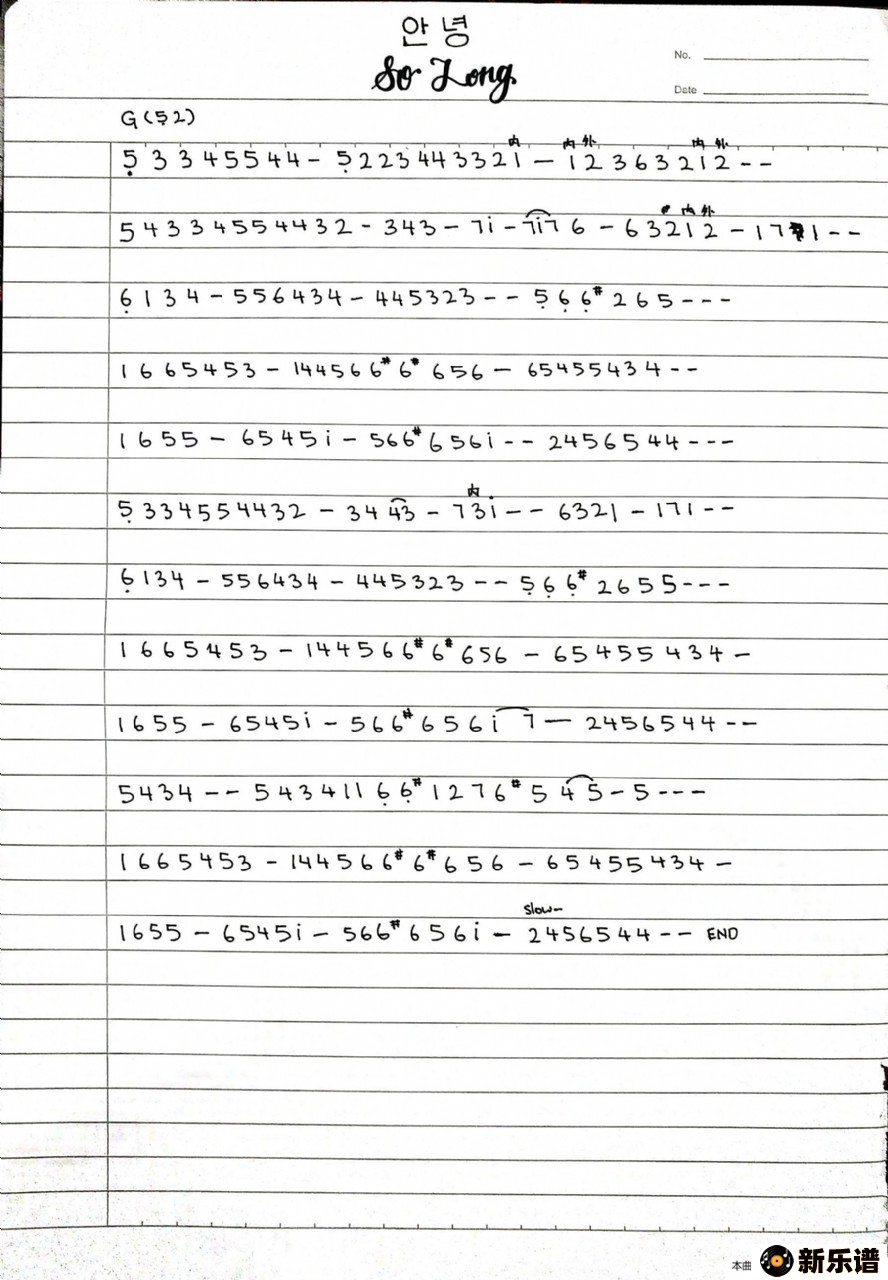 안녕
So Long
No.
Date
G (5̣2)
内 内 外 内 外
5̣ 3 3 4 5 5 4 4 - 5̣ 2 2 3 4 4 3 3 2 1 - 1 2 3 6 3 2 1 2 - -
# 内 外
5 4 3 3 4 5 5 4 4 3 2 - 3 4 3 - 7 i - 7 i 7 6 - 6 3 2 1 2 - 1 7 1 - -
6̣ 1 3 4 - 5 5 6 4 3 4 - 4 4 5 3 2 3 - - 5̣ 6̣ 6̣# 2 6 5 - - -
1 6 6 5 4 5 3 - 1 4 4 5 6 6# 6# 6 5 6 - 6 5 4 5 5 4 3 4 - -
1 6 5 5 - 6 5 4 5 i - 5 6 6# 6 5 6 i - - 2 4 5 6 5 4 4 - - -
内
5̣ 3 3 4 5 5 4 4 3 2 - 3 4 4 3 - 7 3 i - - 6 3 2 1 - 1 7 1 - -
6̣ 1 3 4 - 5 5 6 4 3 4 - 4 4 5 3 2 3 - - 5̣ 6̣ 6̣# 2 6 5 5 - - -
1 6 6 5 4 5 3 - 1 4 4 5 6 6# 6# 6 5 6 - 6 5 4 5 5 4 3 4 -
1 6 5 5 - 6 5 4 5 i - 5 6 6# 6 5 6 i 7 - 2 4 5 6 5 4 4 - -
5 4 3 4 - - 5 4 3 4 1 1 6̣ 6̣# 1 2 7 6# 5 4 5 - 5 - - -
1 6 6 5 4 5 3 - 1 4 4 5 6 6# 6# 6 5 6 - 6 5 4 5 5 4 3 4 -
Slow-
1 6 5 5 - 6 5 4 5 i - 5 6 6# 6 5 6 i - 2 4 5 6 5 4 4 - - END
本曲 新乐谱